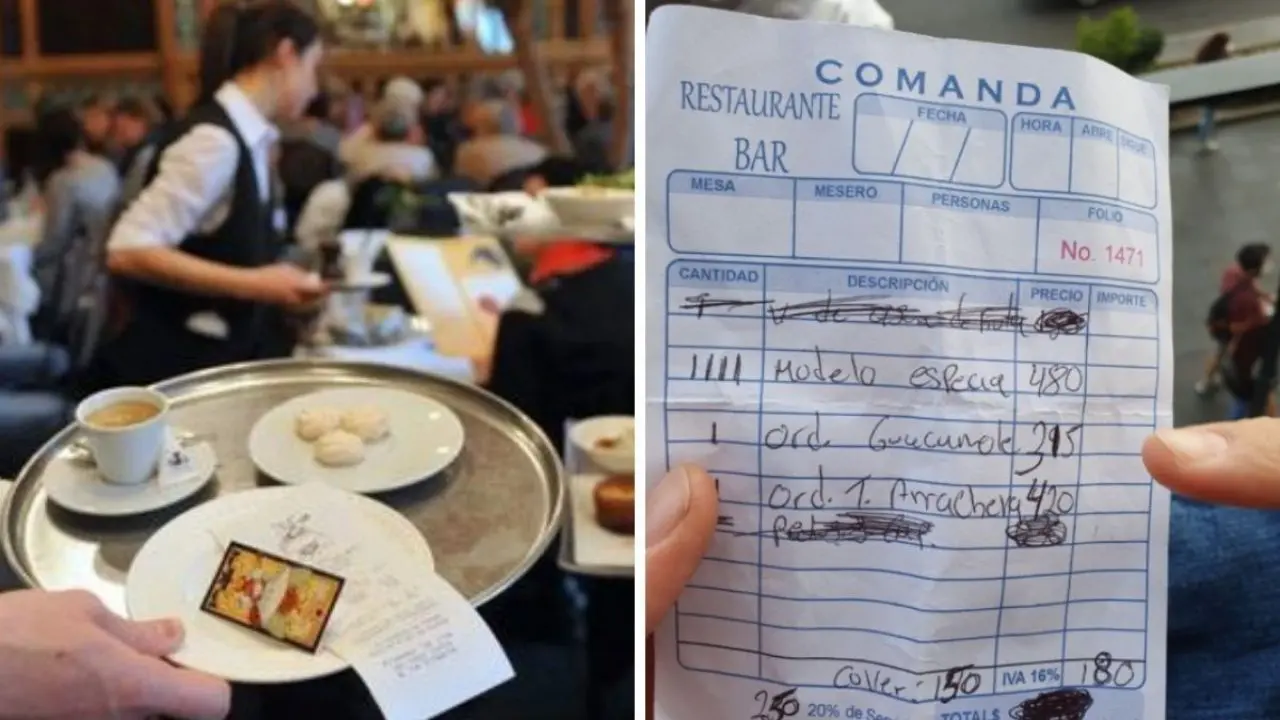 COMANDA
RESTAURANTE
BAR
FECHA
HORA ABRE SIGUE
MESA MESERO PERSONAS FOLIO
No. 1471
CANTIDAD DESCRIPCIÓN PRECIO IMPORTE
IIII Modelo especia 480
1 ord. Guacamole 395
1 ord. T. Arrachera 420
Cover: 150 IVA 16% 180
250 20% de Ser
TOTAL $